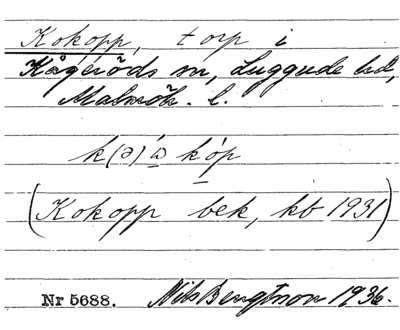 Kokopp, torp i
Kågeröds sn, Luggude hd,
Malmöh. l.
k(ə)ẃ kóp
(Kokopp bek, kb 1931)
Nr 5688. Nils Bengtsson 1936.